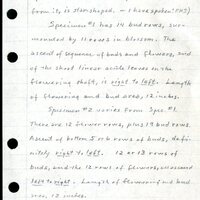 from it, is star-shaped. - I have spoken
Specimen #1 has 14 bud rows, sur-
mounted by 11 rows in blossom. The
ascent of sequence of buds and flowers, and
of the short linear acute leaves in the
flowering shaft, is right to left. Length
of flowering and bud area, 12 inches.
Specimen #2 varies from Spec. #1.
There are 12 flower rows, plus 19 bud rows.
Ascent of bottom 5 or 6 rows of buds, defi-
nitely right to left. 12 or 13 rows of
buds, and the 12 rows of flowers, as ascend
left to right. Length of flowering and bud
area, 12 inches.